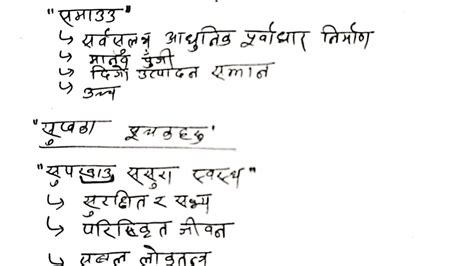 "समाउउ"
सर्वसुलभ आधुनिक पूर्वाधार निर्माण
मानव पुँजी
दिगो उत्पादन
उच्च
"सुखका
"सुपरवाउ ससुरा स्वस्थ"
सुरक्षित र सभ्य
परिष्कृत जीवन
सबल लोकतन्त्र